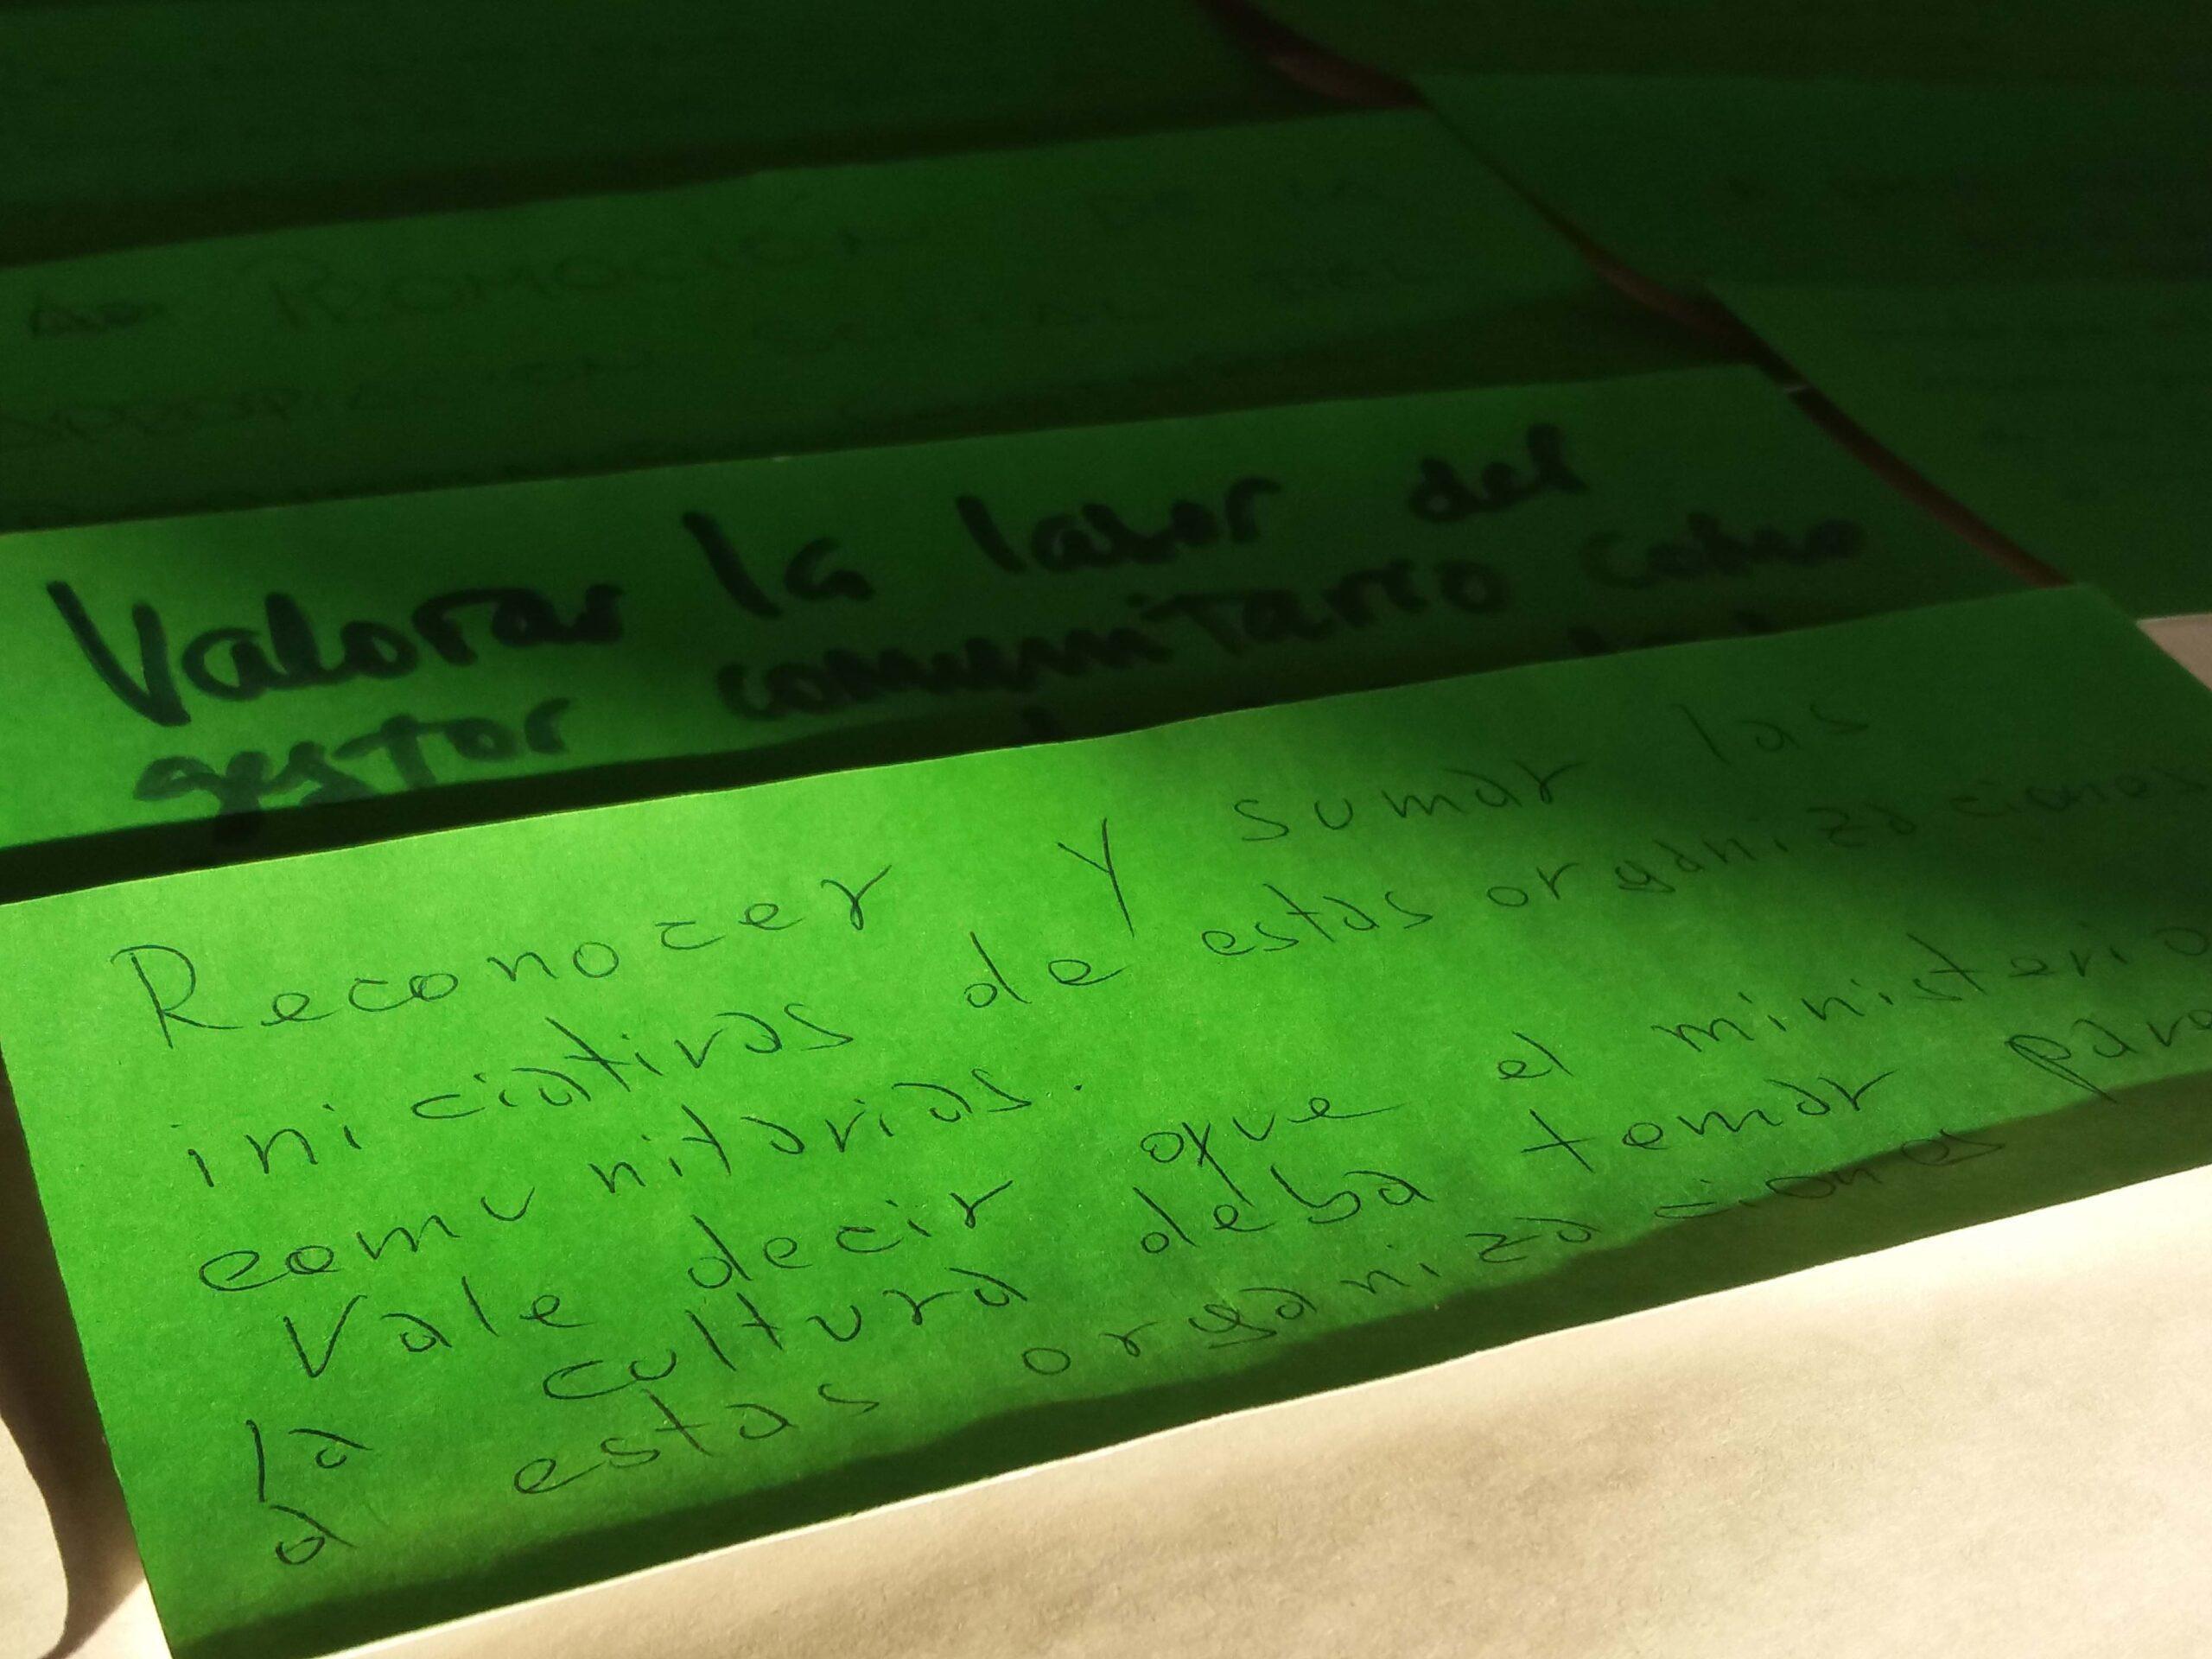 PROMOCIÓN DE LA
SOCIAL DEL
Valorar la labor del
gestor comunitario como
Reconocer y sumar las
iniciativas de estas organizaciones
comunitarias.
Vale decir que el ministerio
la cultura deba tomar para
a estas organizaciones